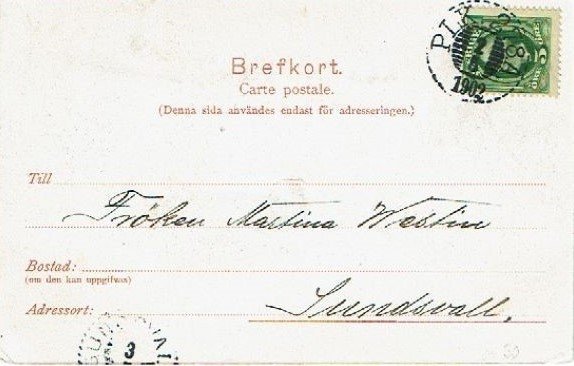 Brefkort.
Carte postale.
(Denna sida användes endast för adresseringen.)
Till
Fröken Martina Westin
Bostad:
(om den kan uppgifvas)
Adressort:
Sundsvall,
1902
3